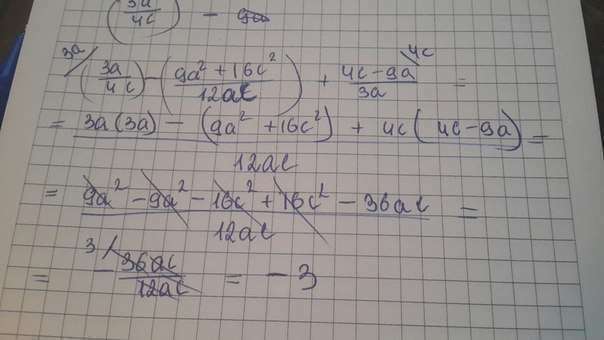 (3a/4c) -
3a (3a/4c) - (9a² + 16c²/12ac) + 4c-9a/3a 4c =
= 3a(3a) - (9a² + 16c²) + 4c(4c-9a)/12ac =
= 9a² - 9a² - 16c² + 16c² - 36ac/12ac =
= 3 - 36ac/12ac = -3